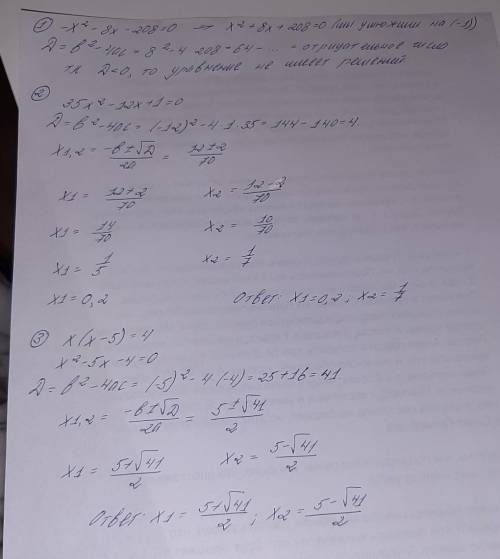 ① -x² - 8x - 208 = 0 → x² + 8x + 208 = 0 (мы умножили на (-1))
D = b² - 4ac = 8² - 4·208 = 64 - ... = отрицательное число
тк D<0, то уравнение не имеет решений
②
35x² - 12x + 1 = 0
D = b² - 4ac = (-12)² - 4·1·35 = 144 - 140 = 4
x1,2 = (-b ± √D)/2a = (12 ± 2)/70
x1 = (12+2)/70 x2 = (12-2)/70
x1 = 14/70 x2 = 10/70
x1 = 1/5 x2 = 1/7
x1 = 0,2 Ответ: x1 = 0,2; x2 = 1/7
③ x(x-5) = 4
x² - 5x - 4 = 0
D = b² - 4ac = (-5)² - 4(-4) = 25 + 16 = 41
x1,2 = (-b ± √D)/2a = (5 ± √41)/2
x1 = (5+√41)/2 x2 = (5-√41)/2
Ответ: x1 = (5+√41)/2; x2 = (5-√41)/2